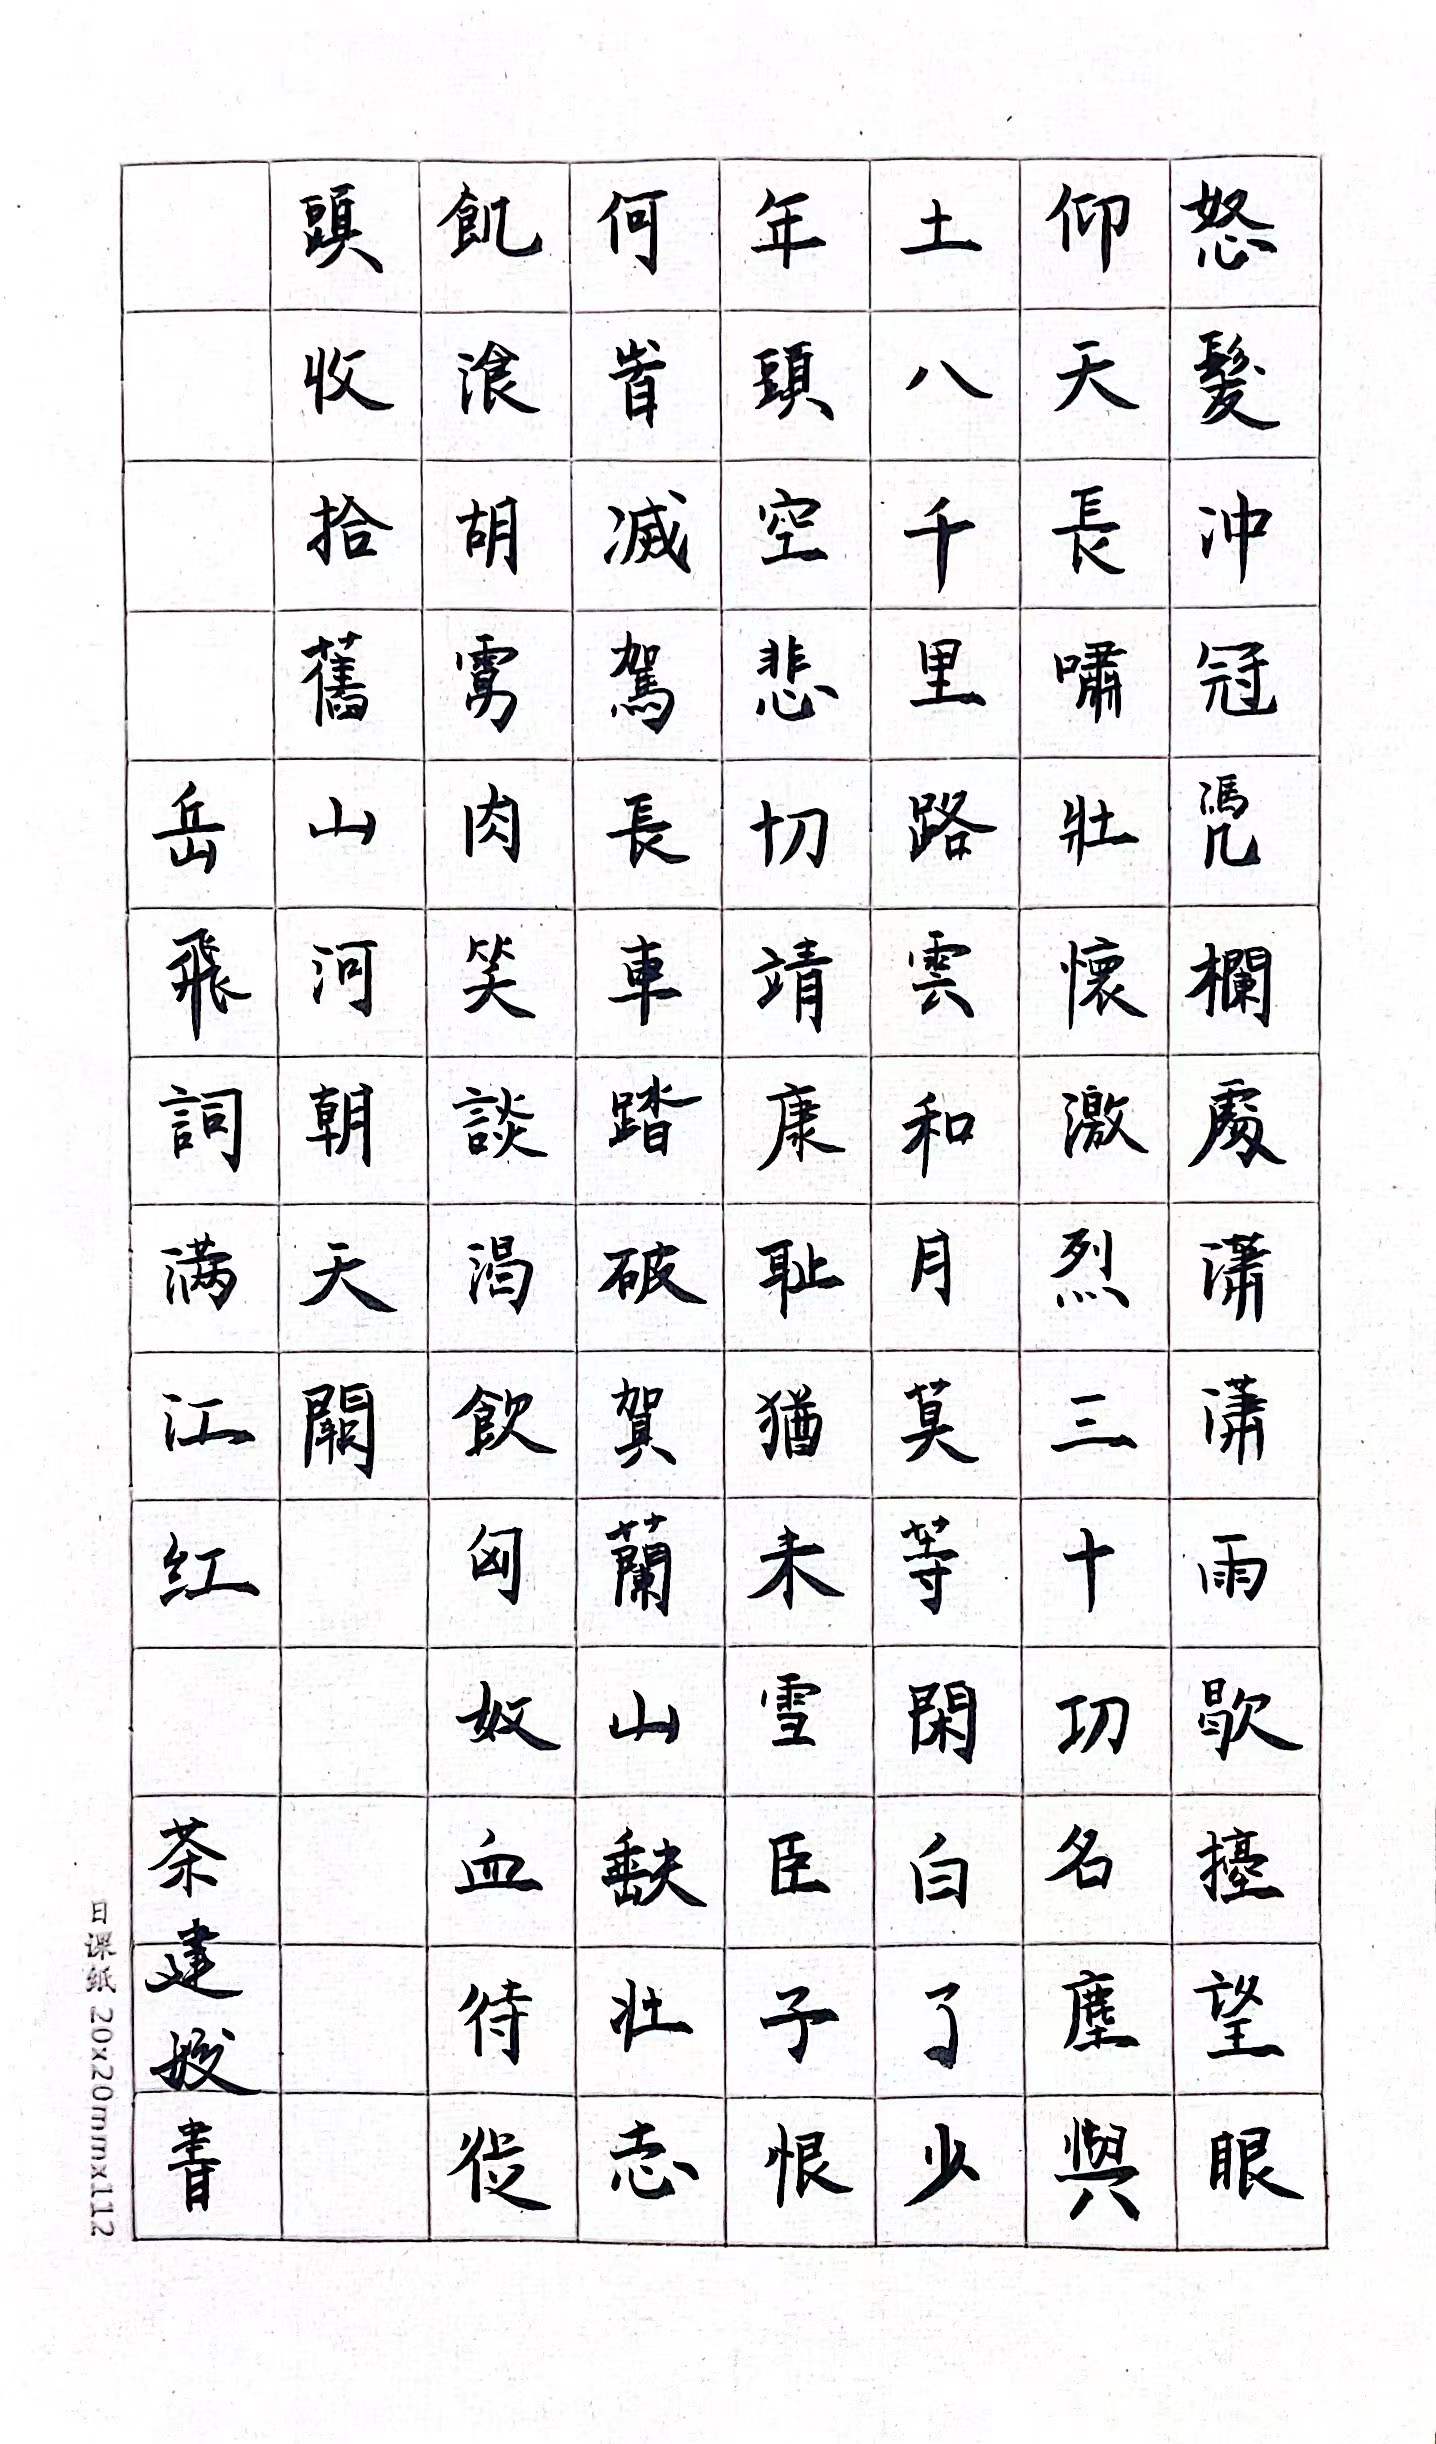 怒髮冲冠凴欄處瀟瀟雨歇擡望眼
仰天長嘯壯懷激烈三十功名塵與
土八千里路雲和月莫等閑白了少
年頭空悲切靖康耻猶未雪臣子恨
何峕滅駕長車踏破賀蘭山缺壯志
飢湌胡虜肉笑談渴飲匈奴血待從
頭收拾舊山河朝天闕
岳飛詞满江红
茶建書
日课纸 20x20mmx112